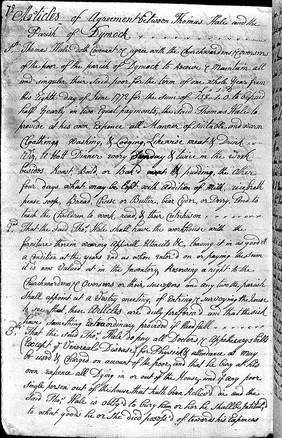 Articles of Agreement between Thomas Hale and the
Parish of Dymock
1st Thomas Hale doth Covenant & agree with the Churchwardens & Overseers
of the poor of the parish of Dymock to receive & Maintain all
and singular their said poor for the term of one whole Year from
this Eighth day of June 1772 for the sume of to be paid
half yearly in two Equal payments, the said Thomas Hale to
provide at his own Expence all Manner of suitable and warm
Cloathing Washing, & Lodging, likewise meat & Drink
Viz, A Hott Dinner every Sunday & twice in the Week
besides Roast Boild, or Bakd meat & pudding, the other
four days what may be left with addition of Milk, rice broth
pease soop, Bread, Cheese or Butter, Beer Cyder, or Perry, And to
teach the Children to work, read, & their Catechism
2d That the said Thos Hale shall have the workhouse with the
furniture therein wearing Apparell Utensils &c, leaving it in as good
a Condition at the years End as when enterd on or paying the sum
it is now Valued at in the Inventory, Reserving a right to the
Churchwardens & Overseers or their Successors and any two the parish
shall appoint at a Vestry meeting, of Entring & surveying the house
& see that these Articles are duly preformd and that the sick
have something Extraordinary provided if Needfull
3d That the said Thos Hale do pay all Doctors & Apothecarys bills
(Except y Universal Disease) for Physick & attendance at may
be used & Charged on account of the poor, and that he bury at his
own expence all Dying in or out of the House, and if any poor
single person out of the house that hath been Relievd die and the
said Thos Hale is obligd to bury them or her he shall be Intitled
to what goods he or she died possessd of towards his Expences